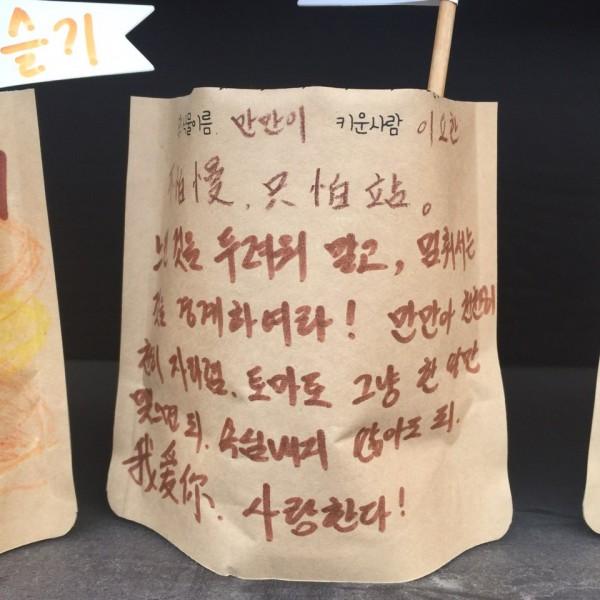 슬기
식물이름. 만만이 키운사람 이요한
不怕慢, 只怕站。
느린 것을 두려워 말고, 멈춰서는
것을 경계하여라! 만만아
자라렴. 토마토 그냥 한 알만
맺으면 되. 않아도 되.
我愛你. 사랑한다!